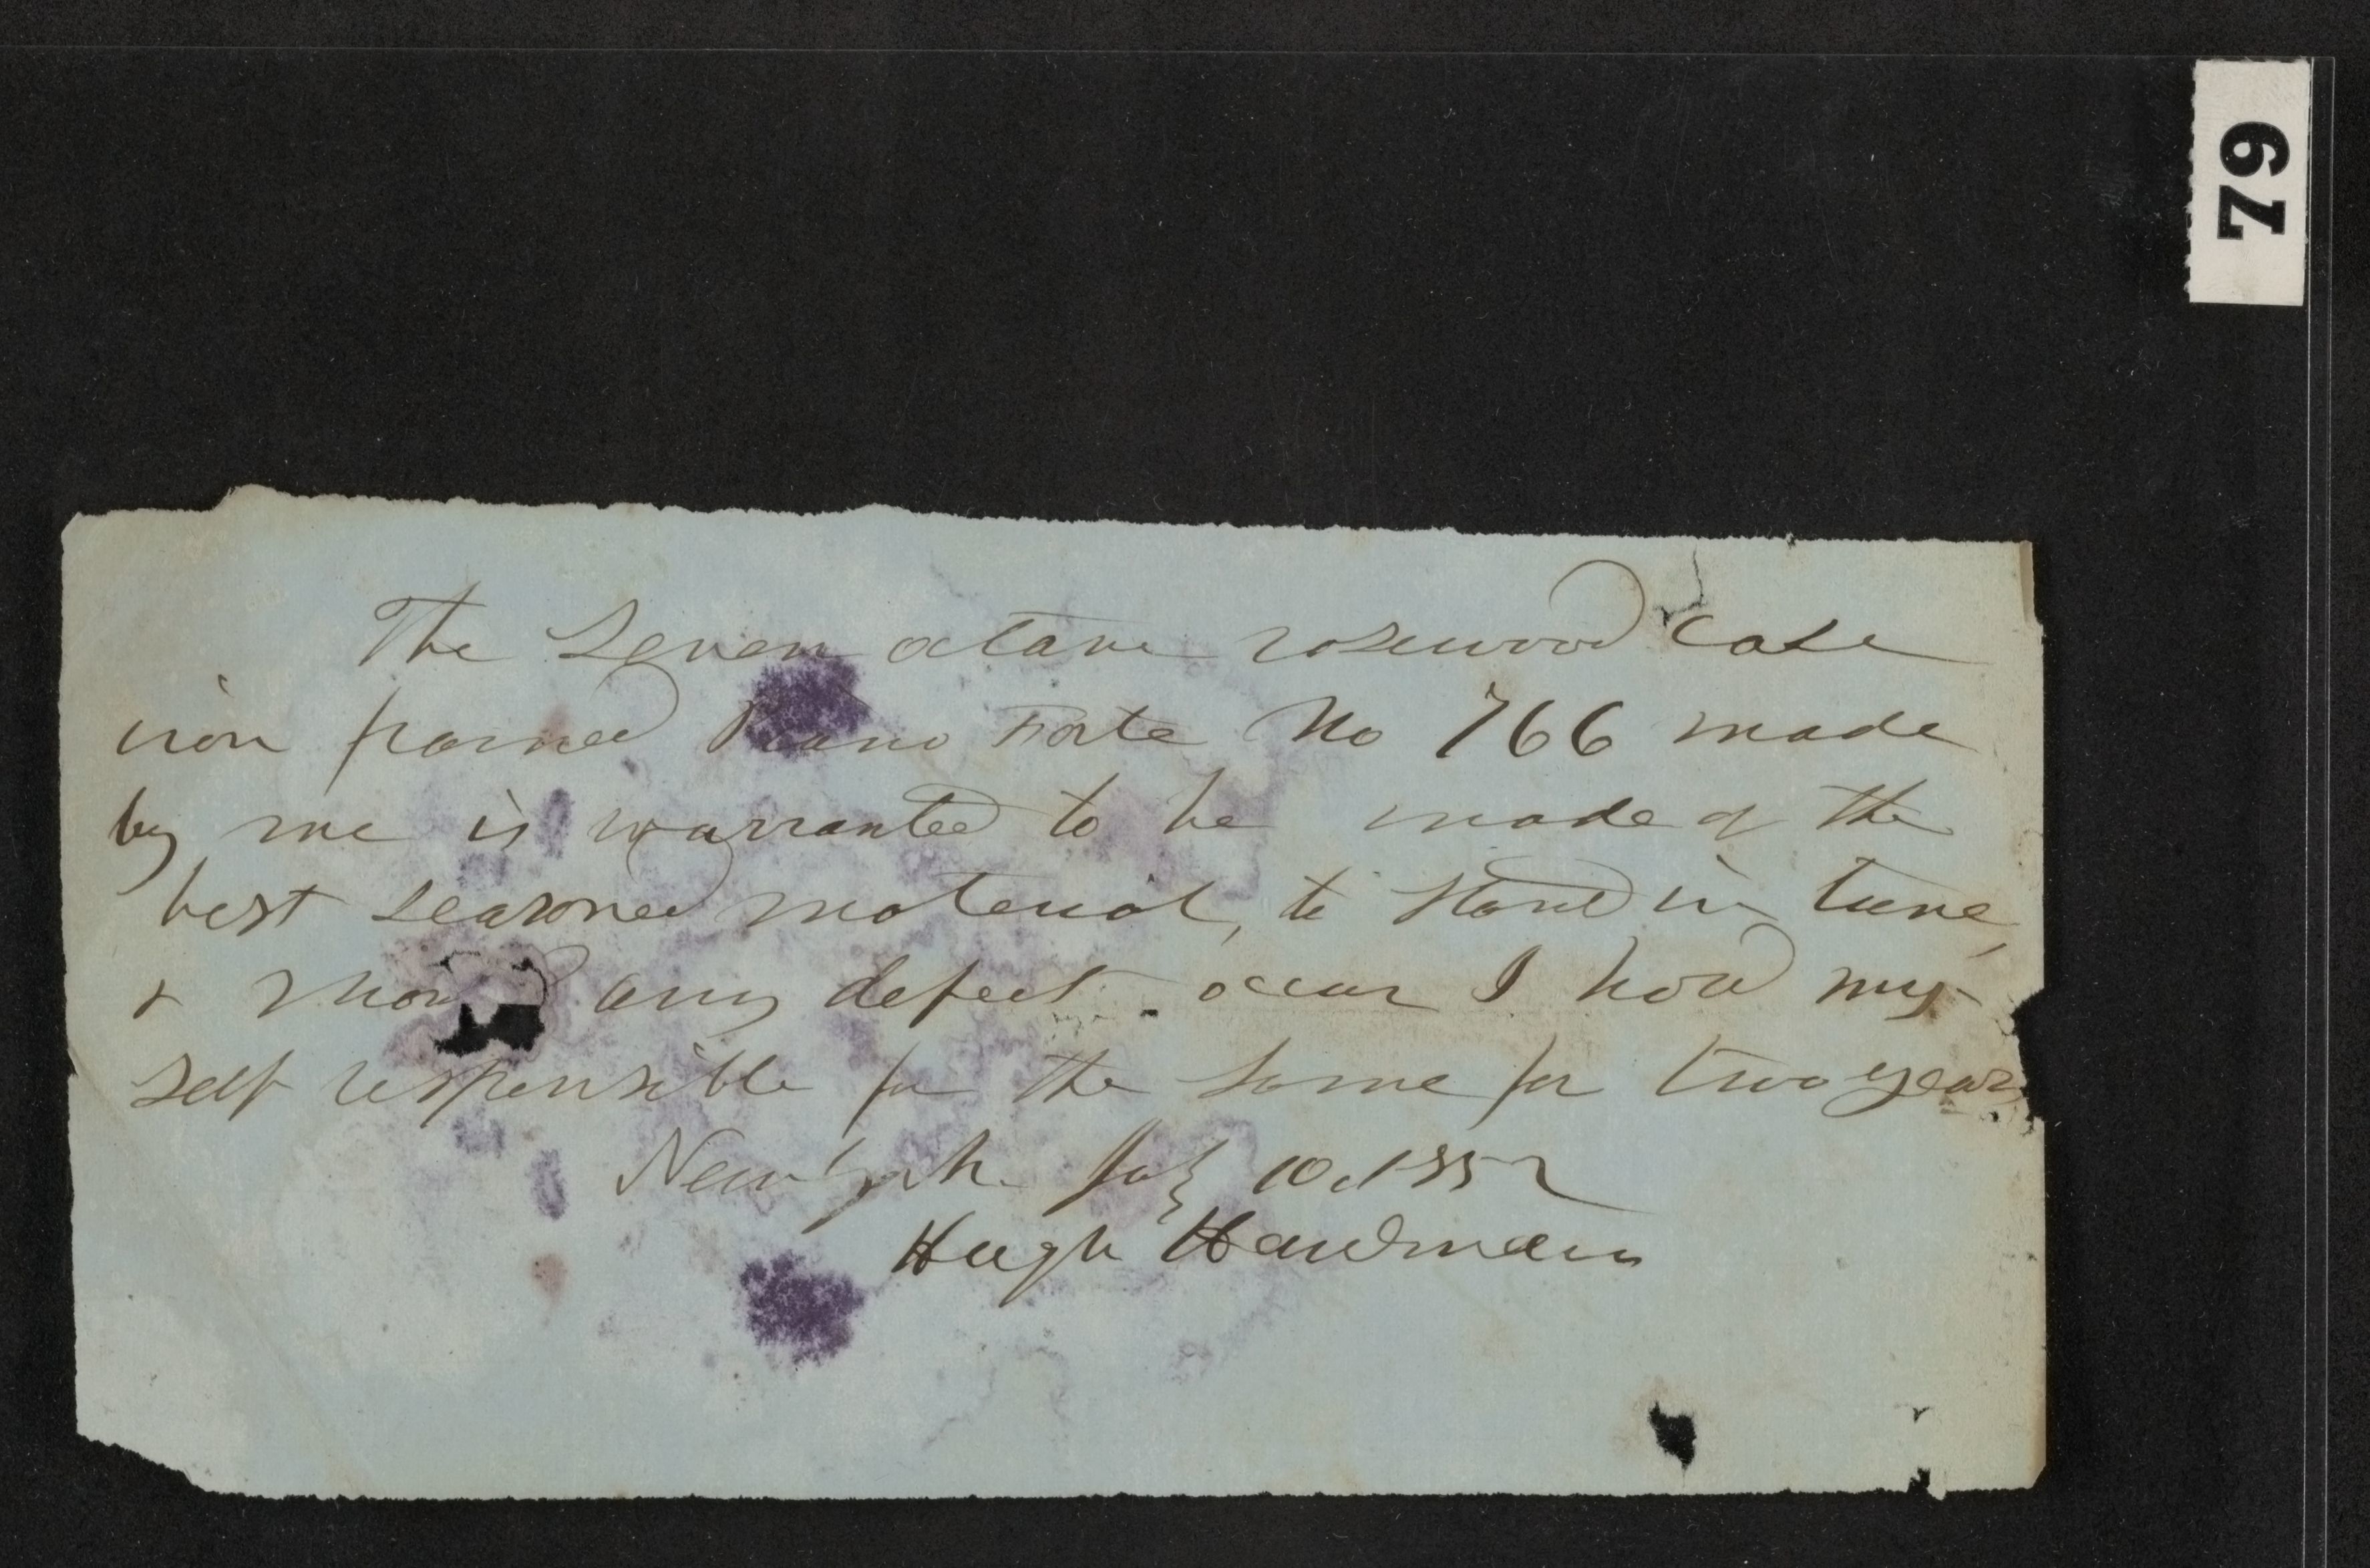 79
The Seven octave rosewood Case
iron framed Piano Forte No 766 made
by me is warranted to be made of the
best seasoned material, to stand in tune,
& should any defect occur I hold my-
self responsible for the same for two years
New York July 10, 1852
Hugh Hardman